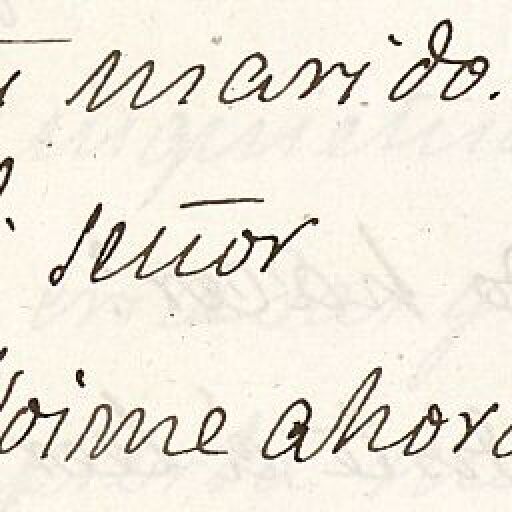 marido.
señor
oime ahora